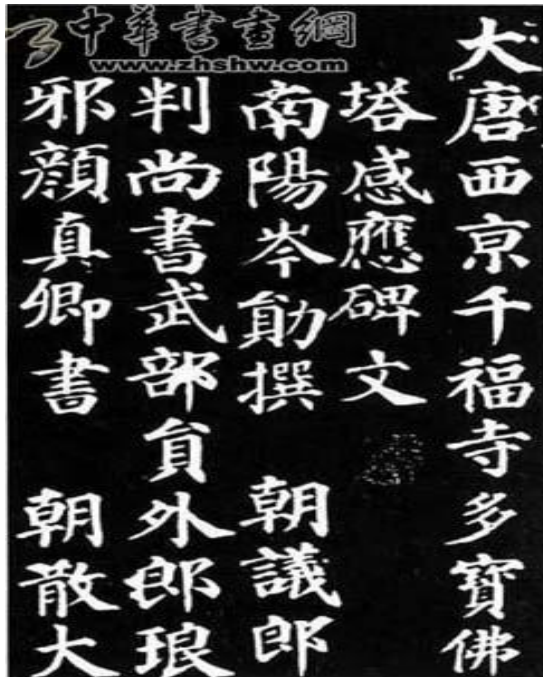 中華書畫網
www.zhshw.com
大唐西京千福寺多寶佛
塔感應碑文
南陽岑勛撰 朝議郎
判尚書武部員外郎琅
邪顏真卿書 朝散大